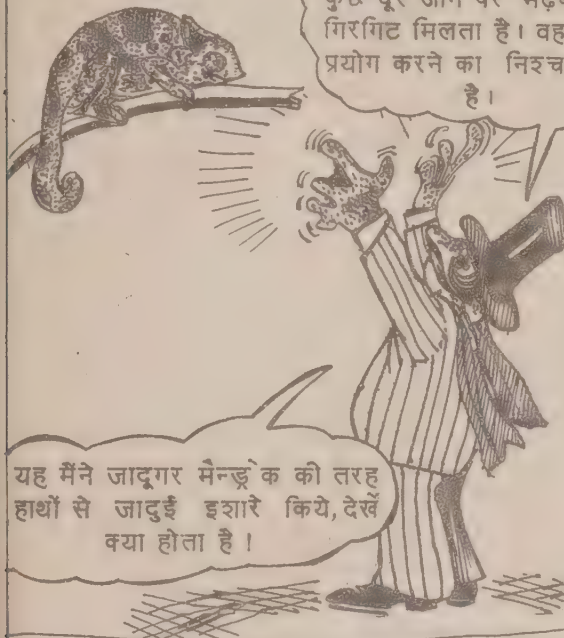 गिरगिट मिलता है। वह
प्रयोग करने का
है।
यह मैंने जादूगर मैन्ड्रेक की तरह
हाथों से जादुई इशारे किये, देखें
क्या होता है !